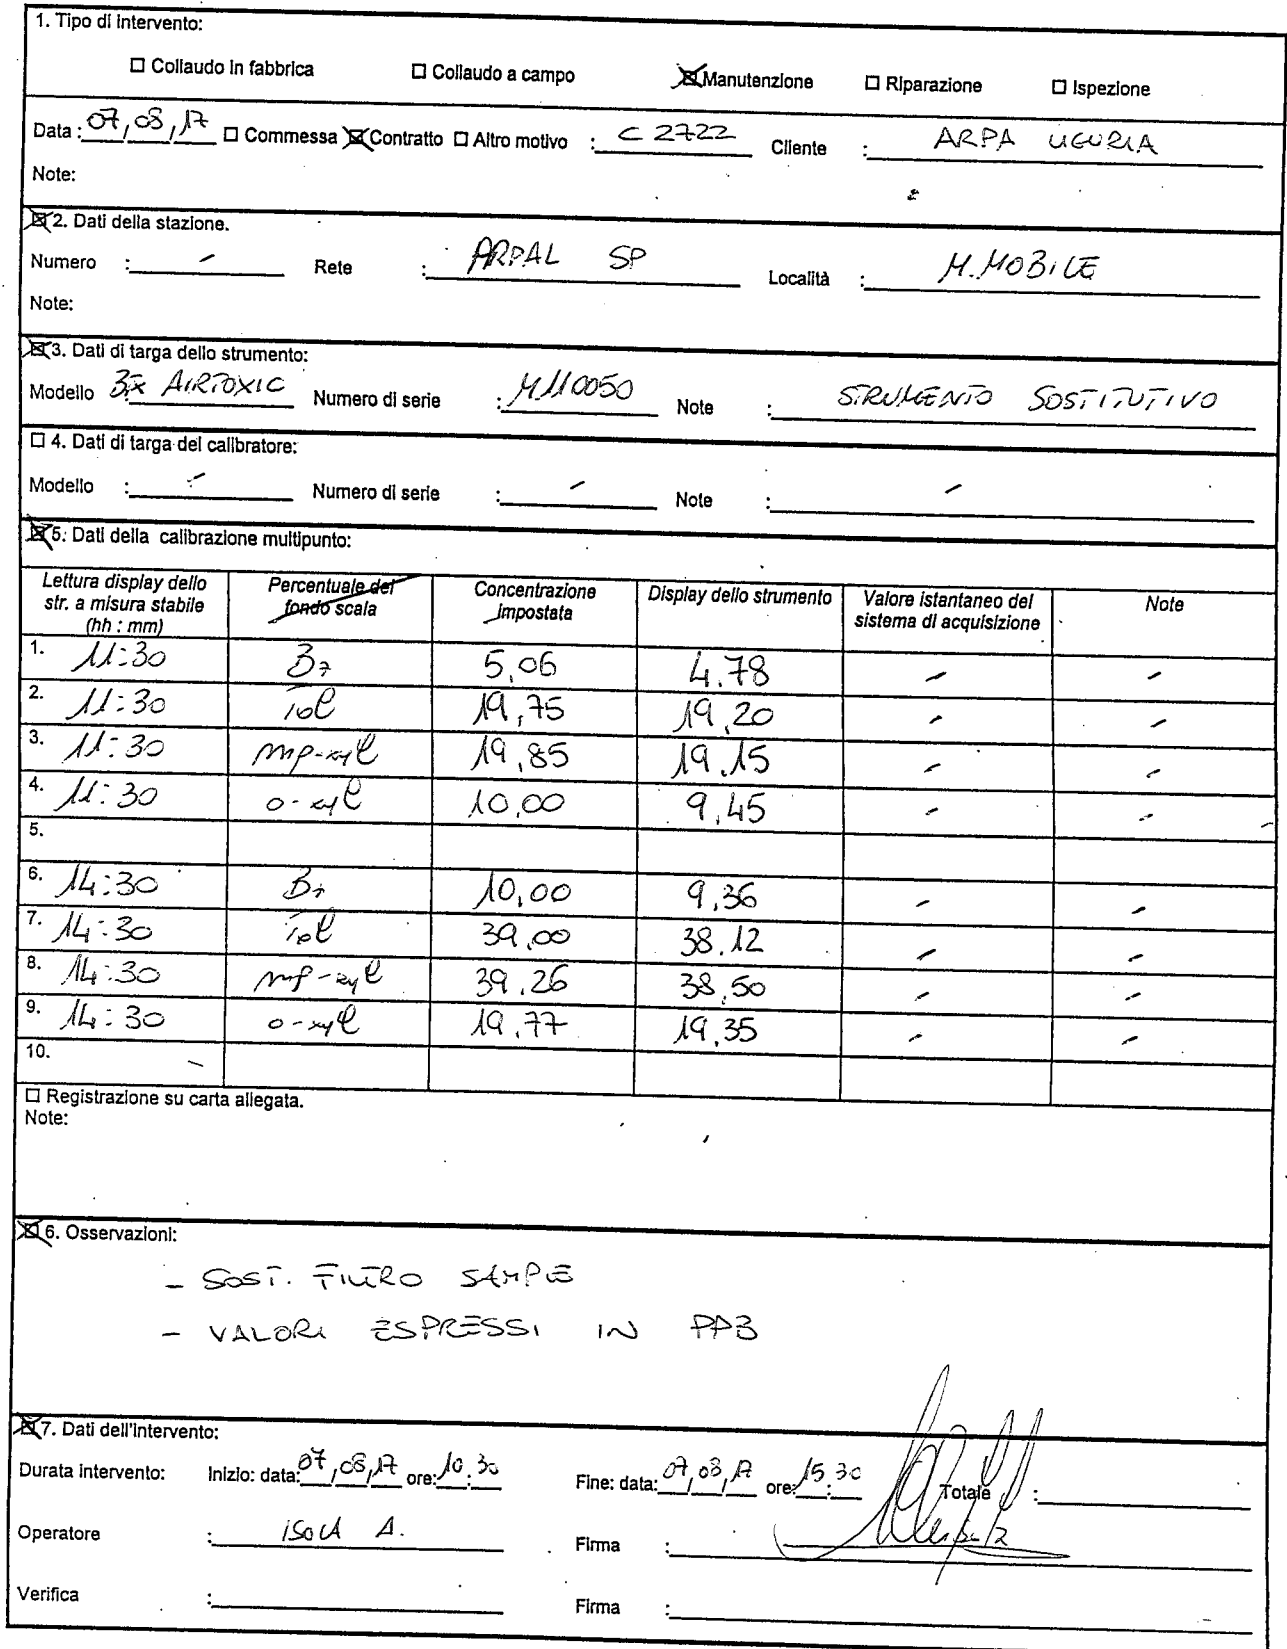 1. Tipo di intervento:
☐ Collaudo in fabbrica ☐ Collaudo a campo ☒ Manutenzione ☐ Riparazione ☐ Ispezione
Data : 07/08/17 ☐ Commessa ☒ Contratto ☐ Altro motivo : C 2722 Cliente : ARPA LIGURIA
Note:
☒ 2. Dati della stazione.
Numero : - Rete : ARPAL SP Località : M.MOBILE
Note:
☒ 3. Dati di targa dello strumento:
Modello : AIRTOXIC Numero di serie : M110050 Note : STRUMENTO SOSTITUTIVO
☐ 4. Dati di targa del calibratore:
Modello : - Numero di serie : - Note : -
☒ 5. Dati della calibrazione multipunto:
Lettura display dello str. a misura stabile (hh : mm) Percentuale del fondo scala Concentrazione impostata Display dello strumento Valore istantaneo del sistema di acquisizione Note
1. 11:30 Bz 5,06 4.78 - -
2. 11:30 Tol 19,75 19,20 - -
3. 11:30 mp-xyl 19,85 19.15 - -
4. 11:30 o-xyl 10,00 9,45 - -
5.
6. 14:30 Bz 10,00 9,36 - -
7. 14:30 Tol 39,00 38.12 - -
8. 14:30 mp-xyl 39,26 38,50 - -
9. 14:30 o-xyl 19,77 19,35 - -
10.
☐ Registrazione su carta allegata.
Note:
☒ 6. Osservazioni:
- SOST. FILTRO SAMPLE
- VALORI ESPRESSI IN PPB
☒ 7. Dati dell'intervento:
Durata intervento: Inizio: data: 07/08/17 ore: 10:30 Fine: data: 07/08/17 ore: 15:30 Totale :
Operatore : ISOLA A. Firma :
Verifica : Firma :